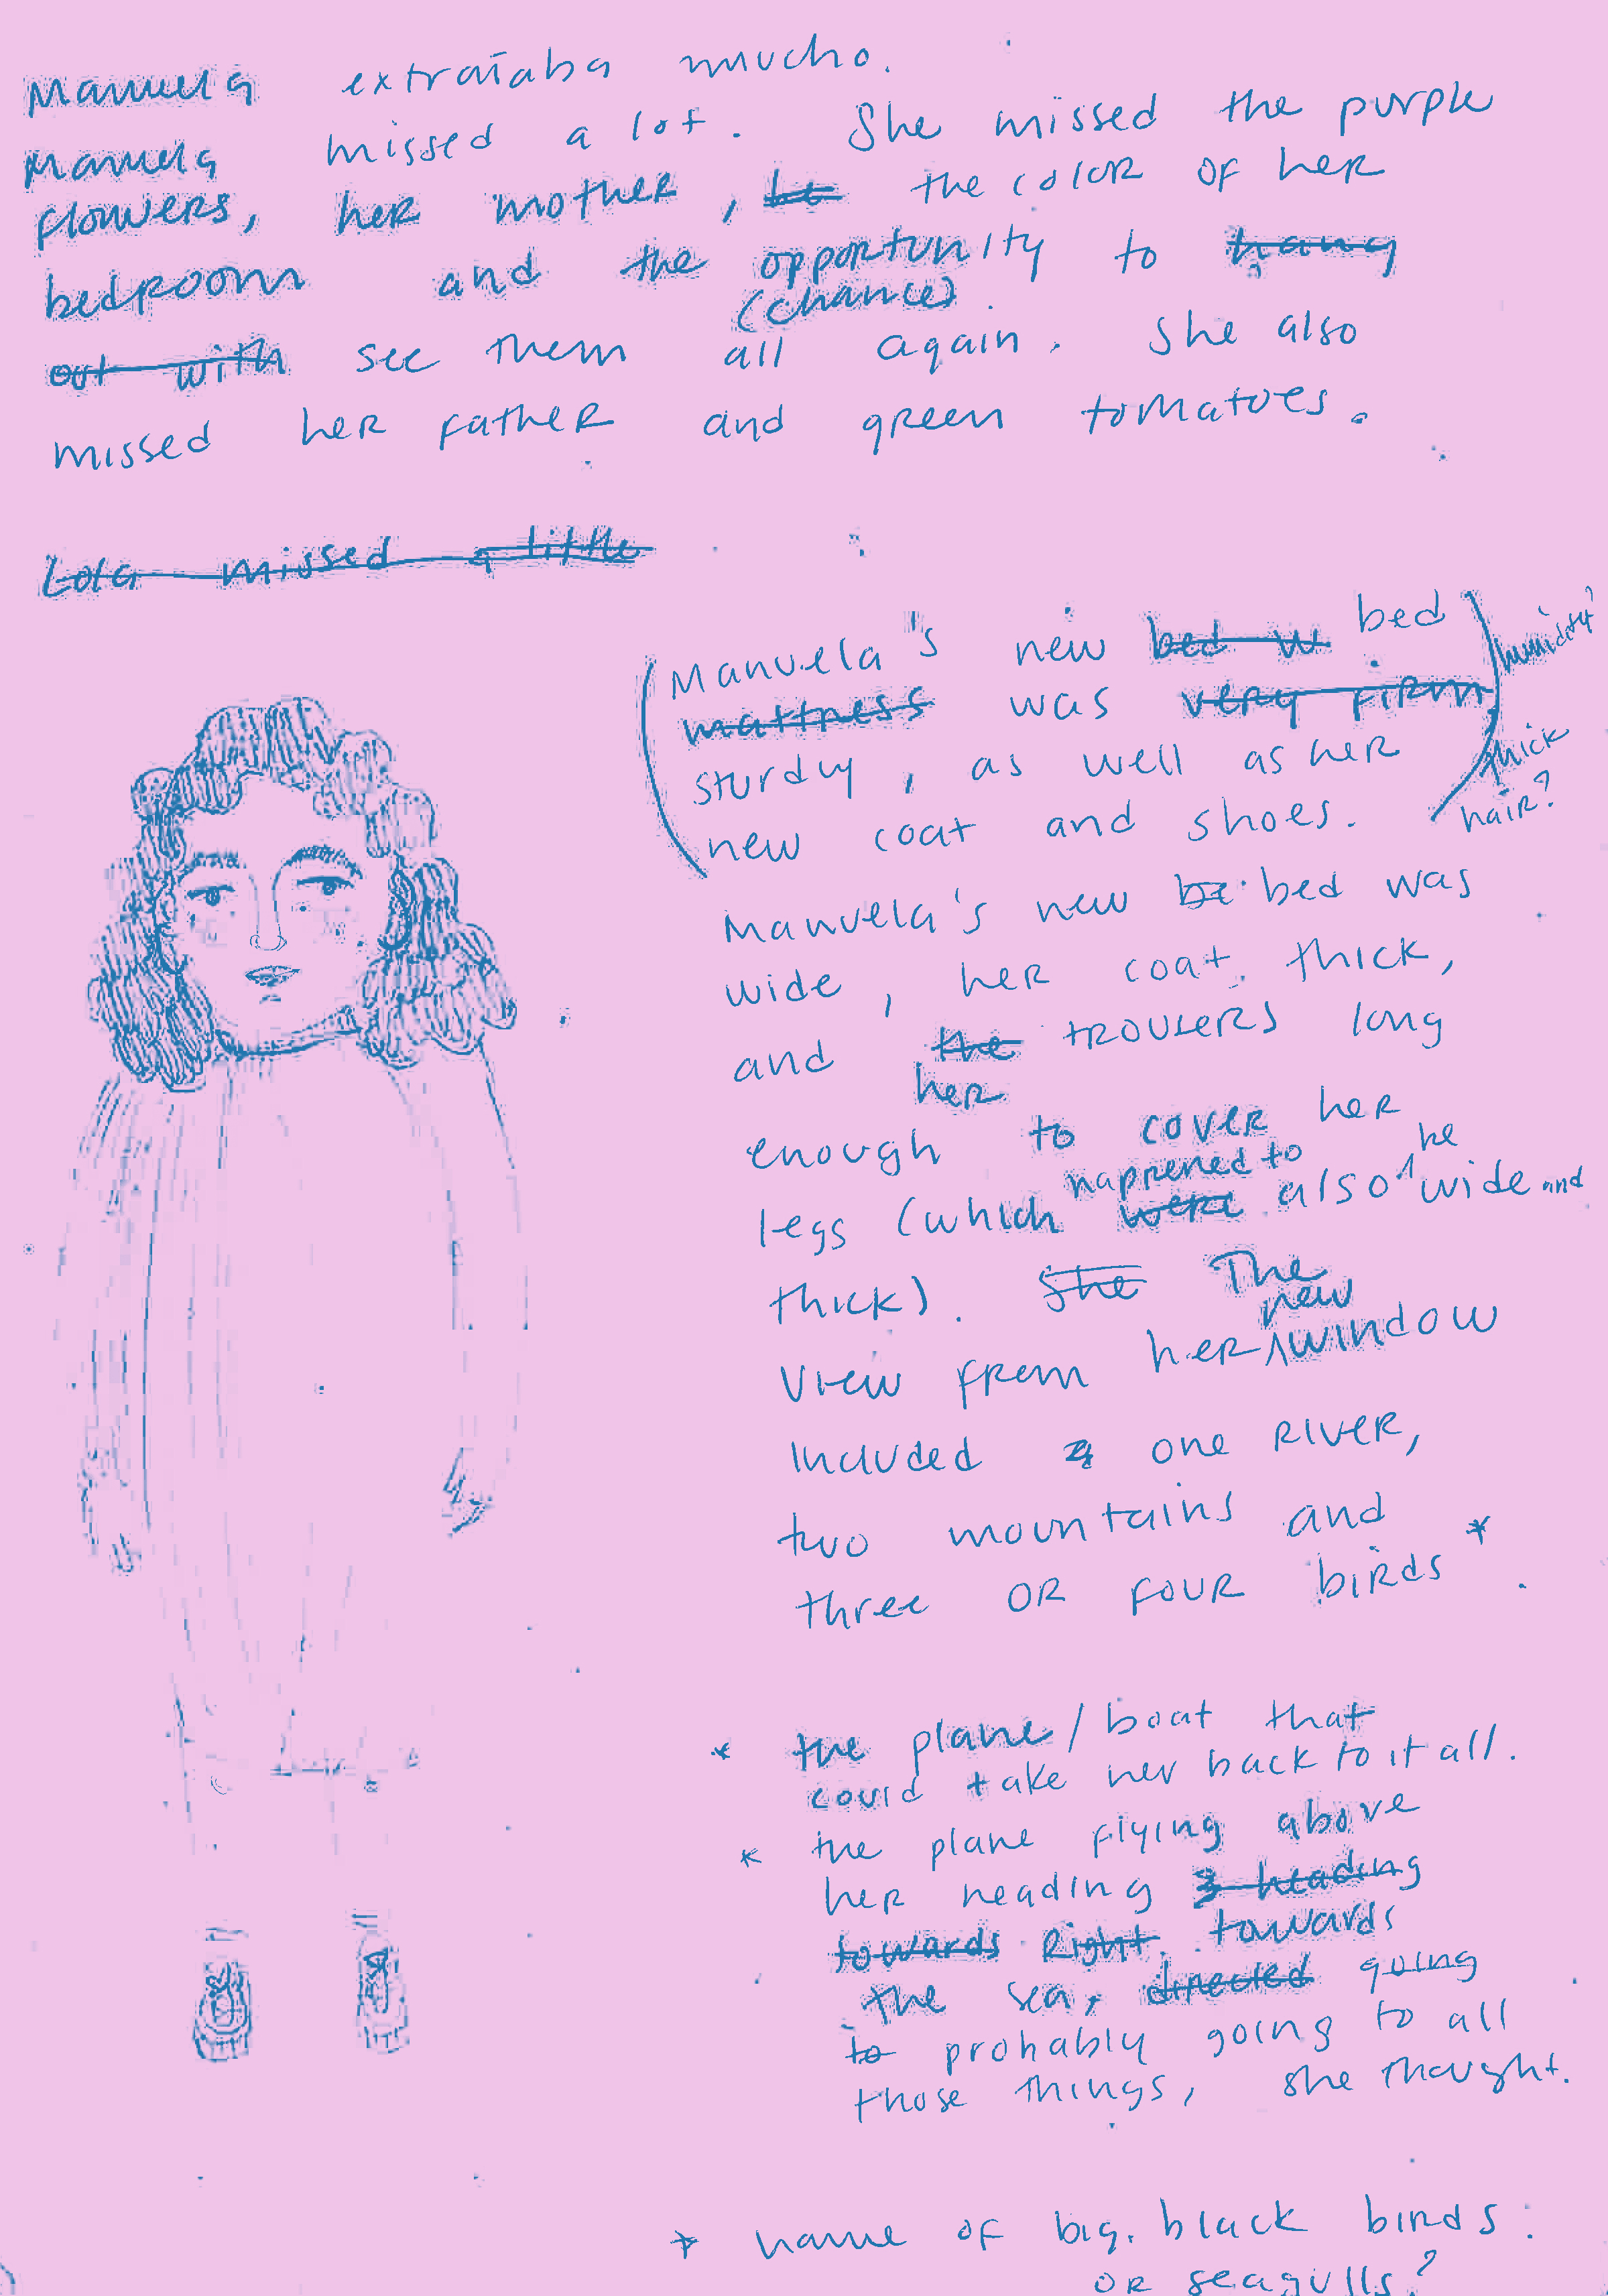 Manuela extrañaba mucho.
Manuela missed a lot. She missed the purple
flowers, her mother, he the color of her
bedroom and the opportunity to hang
(chance)
out with see them all again. She also
missed her father and green tomatoes.
Lola missed a little
(Manuela's new bed w bed
mattress was very firm
sturdy, as well as her
new coat and shoes.)
humidity?
thick
hair?
Manuela's new be bed was
wide, her coat thick,
and the trousers long
her
enough to cover her
happened to be
legs (which were also wide and
thick). She The
new
view from her window
included a one river,
two mountains and
three or four birds *.
* the plane/boat that
could take her back to it all.
* the plane flying above
her heading heading
towards right towards
the sea, directed going
to probably going to all
those things, she thought.
* name of big, black birds:
or seagulls?